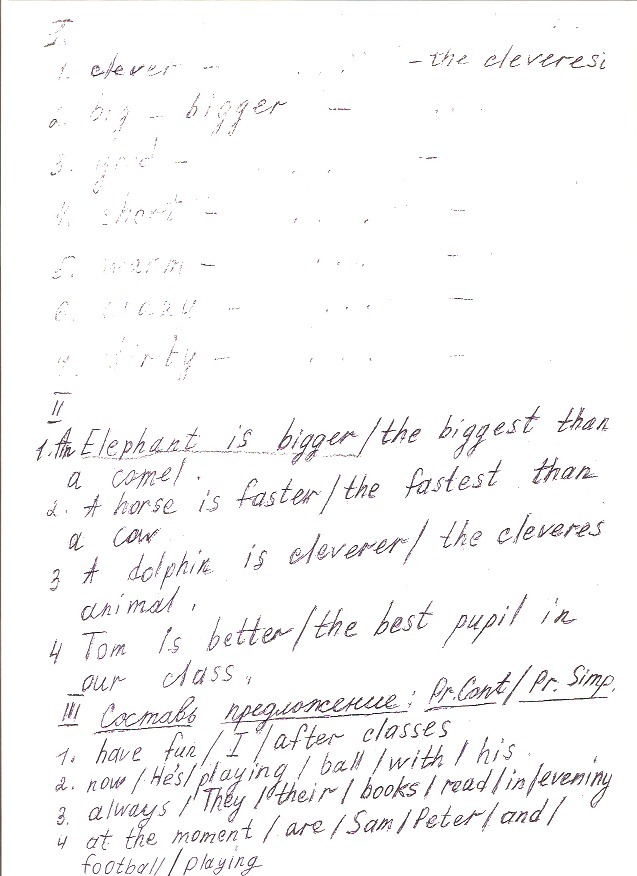 I.
1. clever - ... - the cleveresi
2. big - bigger - ...
3. good - ... -
4. short - ... -
5. warm - ... -
6. crazy - ... -
7. dirty - ... -
II
1. An Elephant is bigger/the biggest than
a comel.
2. A horse is faster/the fastest than
a cow
3 A dolphin is cleverer/ the cleveres
animal.
4 Tom is better/the best pupil in
our class.
III Составь предложение: Pr.Cont/Pr. Simp.
1. have fun / I / after classes
2. now / He's / playing / ball / with / his.
3. always / They / their / books / read / in / evening
4 at the moment / are / Sam / Peter / and /
football / playing